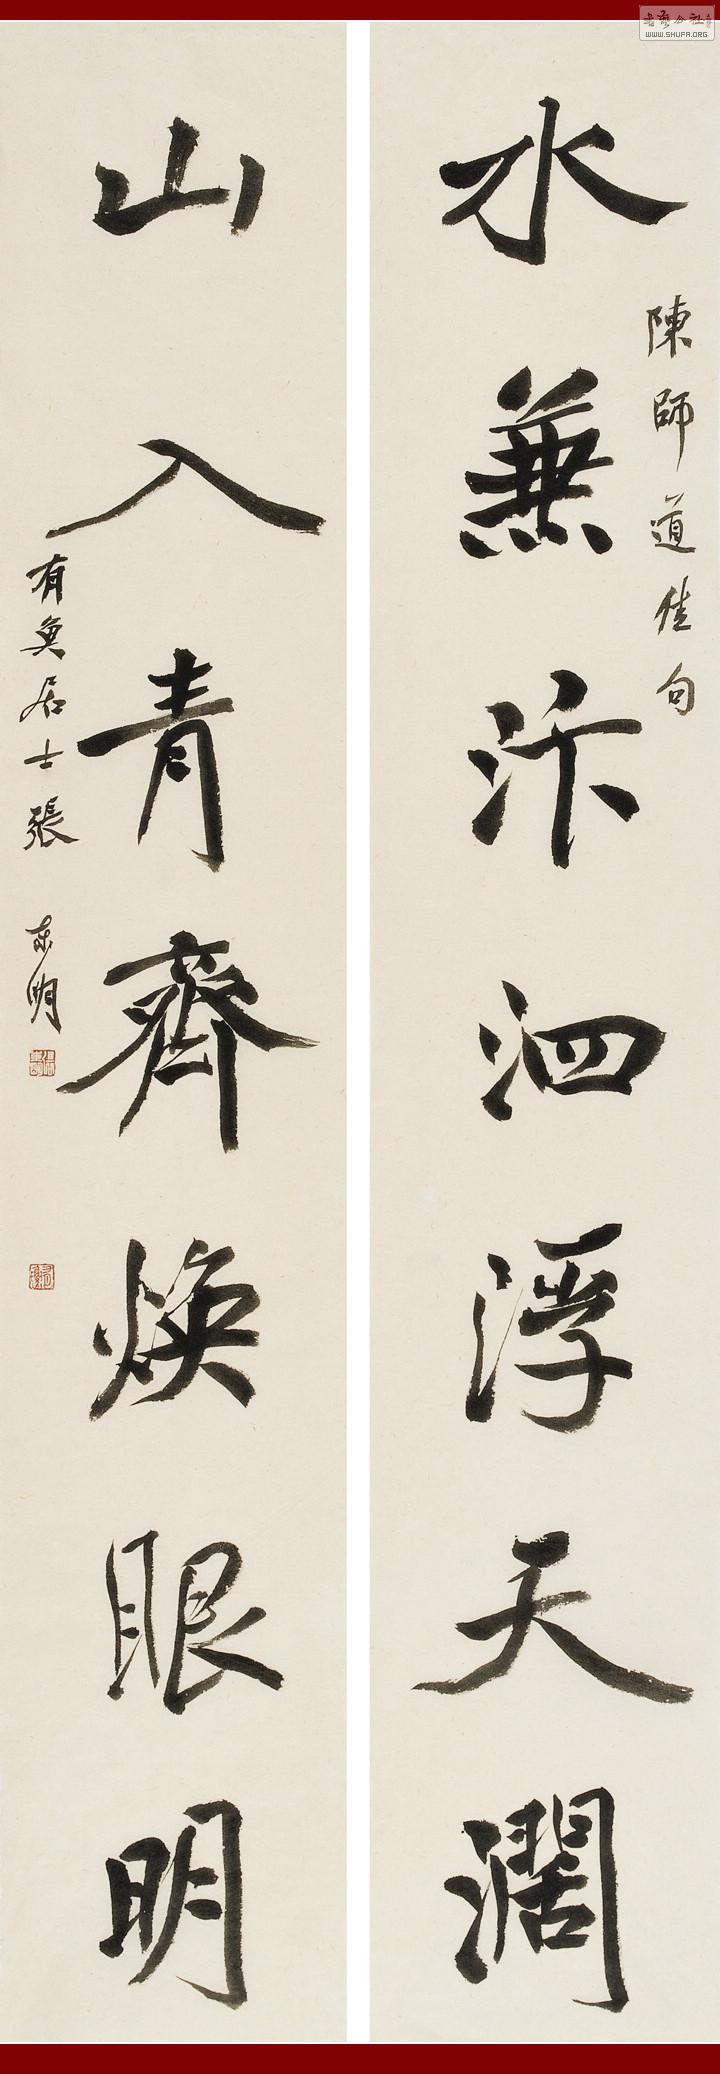 水兼汴泗浮天濶
陳師道佳句
山入青齊煥眼明
有奐居士張东明
WWW.SHUFA.ORG